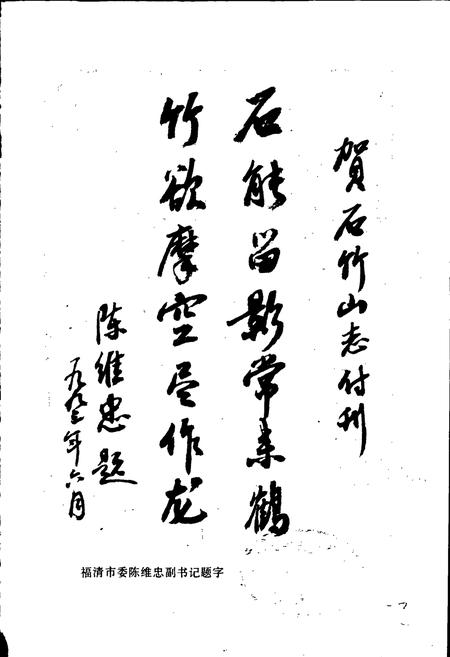 賀石竹山志付刊
石能留影常来鶴
竹欲摩空尽作龙
陈维忠题
一九九三年六月
福清市委陈维忠副书记题字